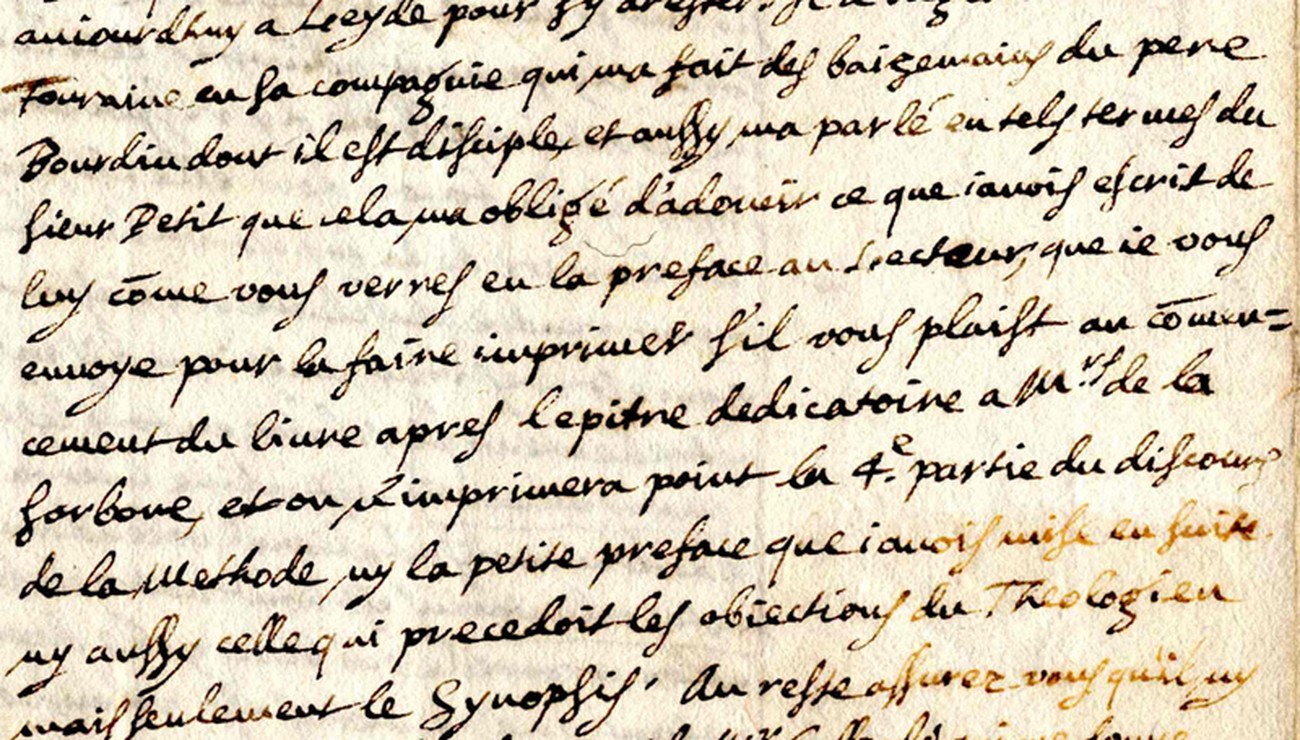 auiourdhuy a Leyde pour sy arester. Il a
Touraine en sa compagnie qui ma fait des baizemains du pere
Bourdin dont il est disciple, et aussy ma parlé en tels termes du
sieur Petit que cela ma obligé d'adoucir ce que iauois escrit de
luy cōme vous verres en la preface au Lecteur, que ie vous
enuoye pour la faire imprimer s'il vous plaist au cōmen=
cement du liure apres lepitre dedicatoire a Mrs de la
sorbone, et on n'imprimera point la 4e. partie du discours
de la Methode, ny la petite preface que iauois mise en suite.
ny aussy celle qui precedoit les obiections du Theologien
mais seulement le Synopsis. Au reste assurez vous qu'il ny